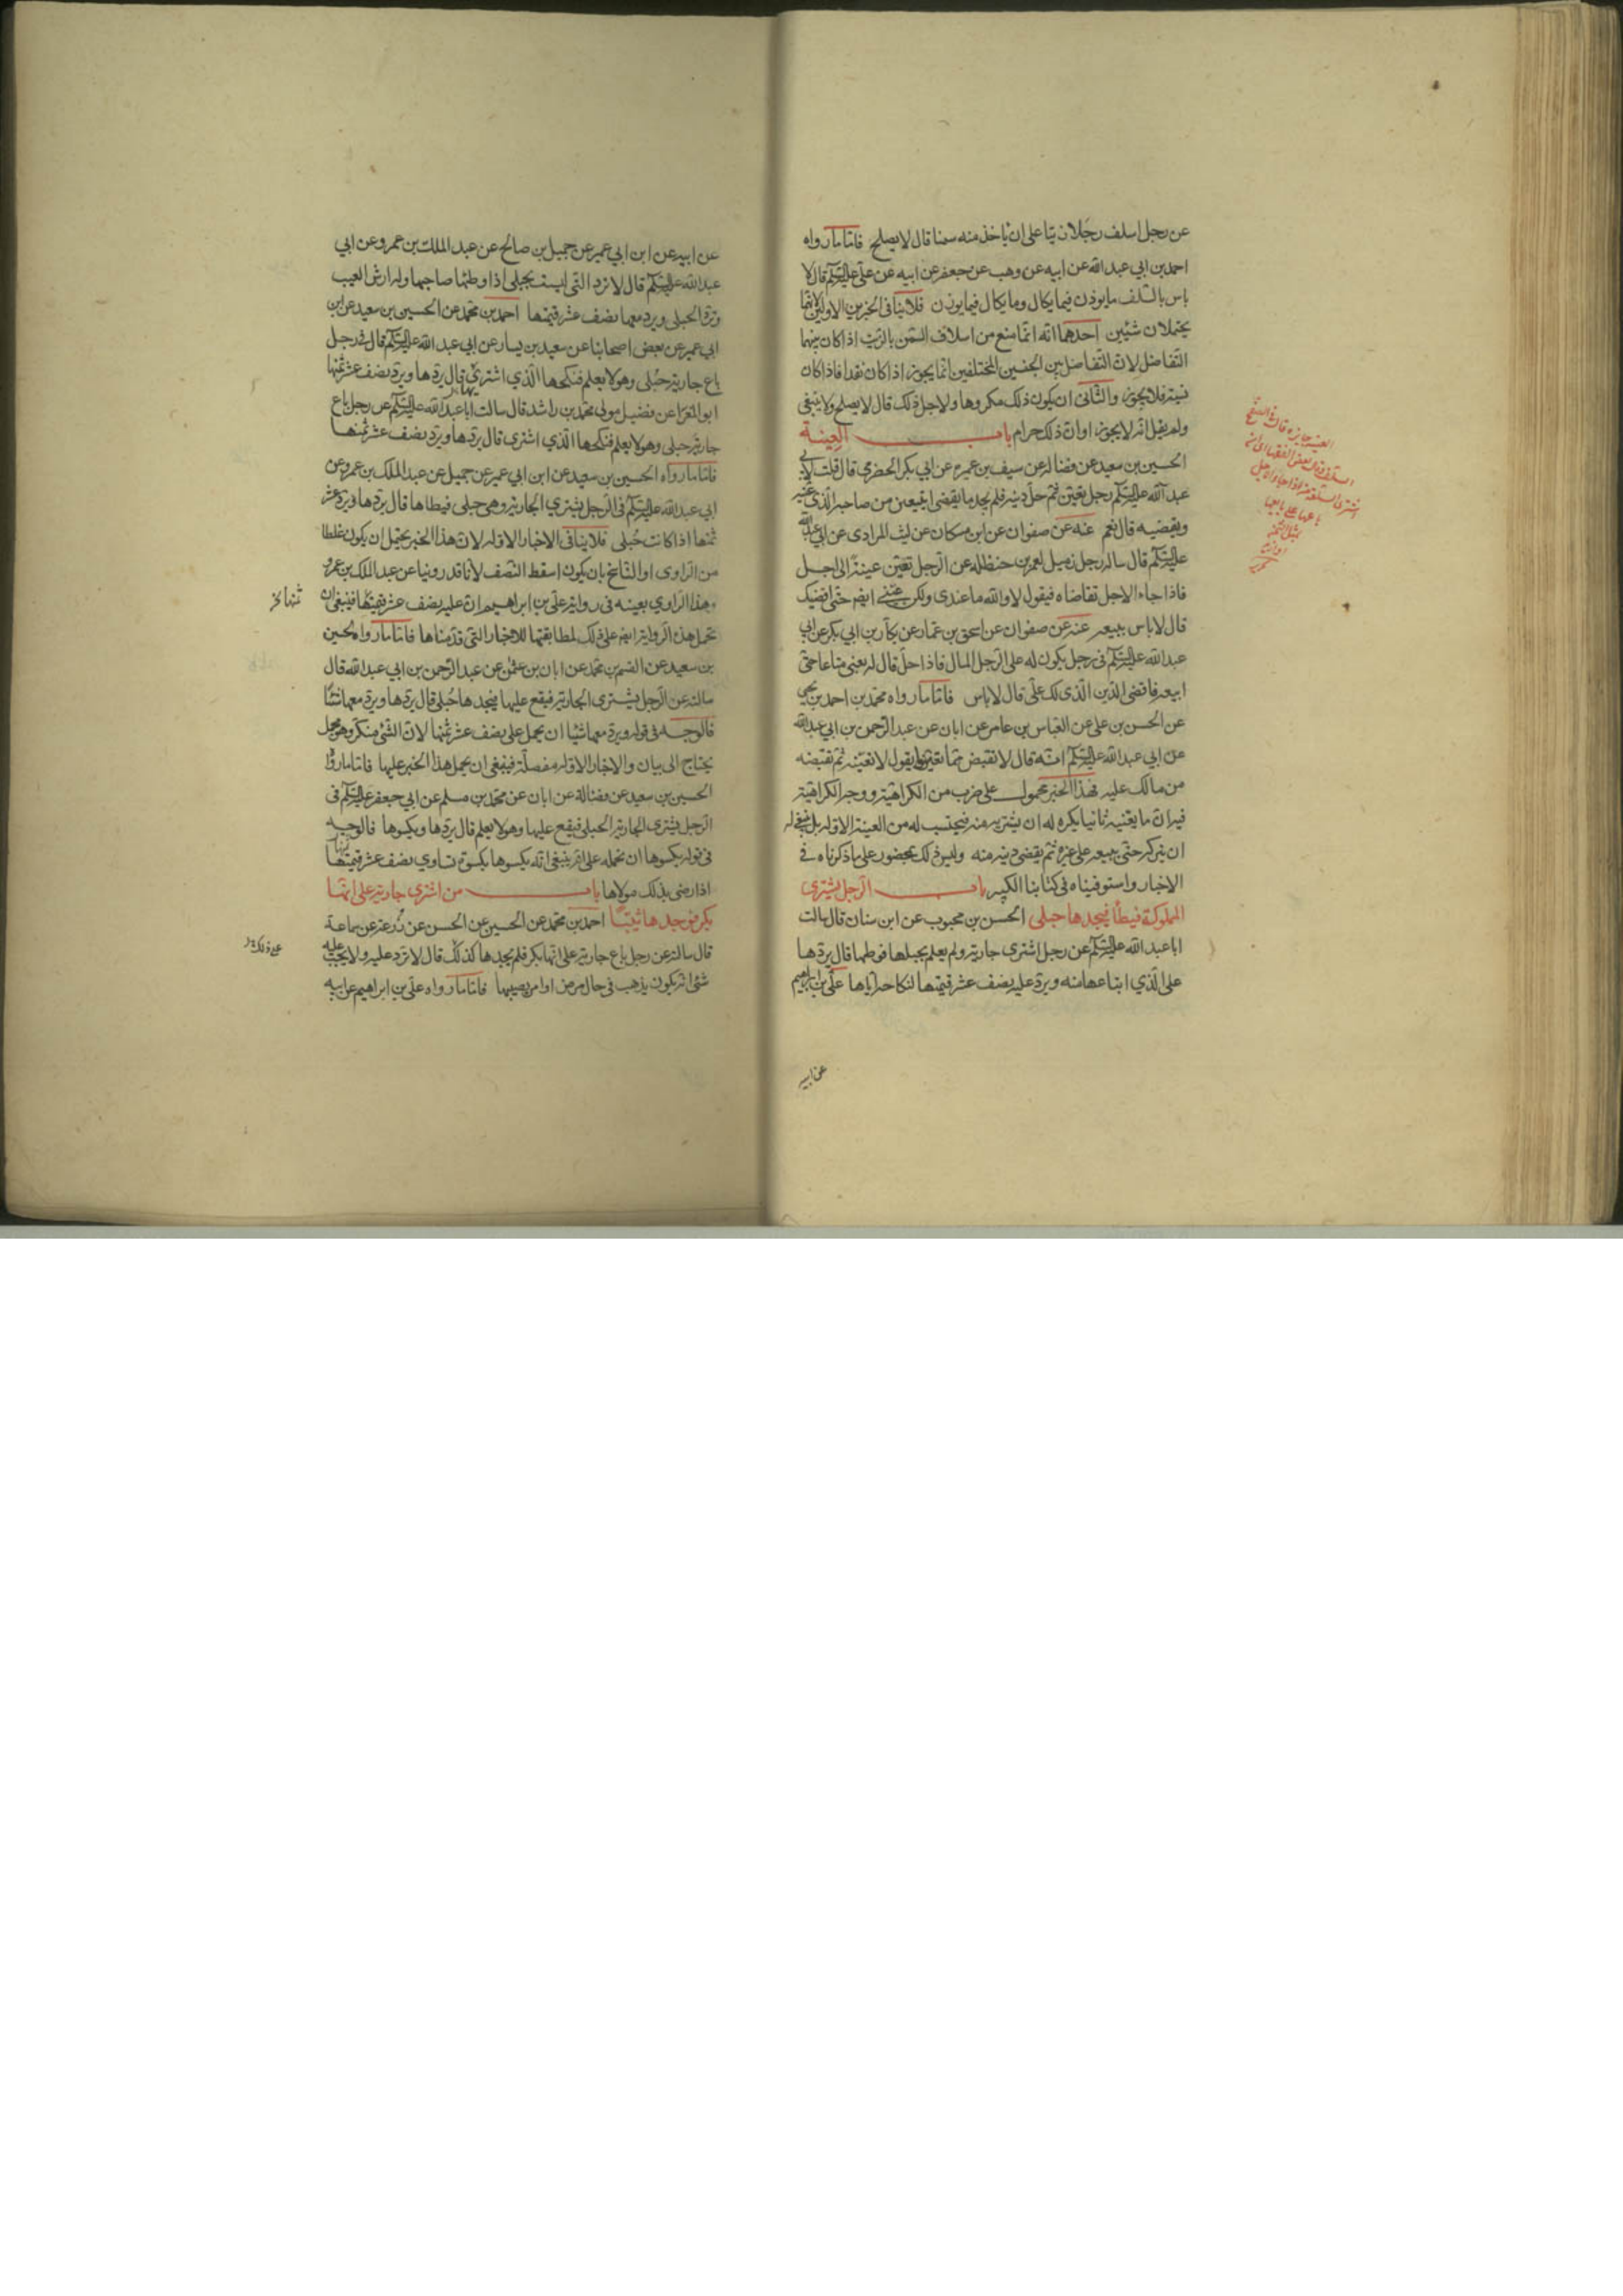 عن رجل اسلف رجلا زيتا على ان ياخذ منه سمنا قال لا يصلح فاما ما رواه
احمد بن ابي عبد الله عن ابيه عن وهب عن جعفر عن ابيه عن علي عليه السلم قال لا
باس بالسلف ما يوزن فيما يكال وما يكال فيما يوزن فلا ينافي الخبرين الاولين لانهما
يحتملان شيئين احدهما انه انما منع من اسلاف السمن بالزيت اذا كان بينهما
التفاضل لان التفاضل بين الجنسين المختلفين انما يجوز اذا كان نقدا فاذا كان
نسية فلا يجوز والثاني ان يكون ذلك مكروها ولاجل ذلك قال لا يصلح ولا ينبغي
ولم يقل انه لا يجوز او ان ذلك حرام باب العينة
الحسين بن سعيد عن فضالة عن سيف بن عميرة عن ابي بكر الحضرمي قال قلت لابي
عبد الله عليه السلم رجل تعين ثم حل دينه فلم يجد ما يقضي ايتعين من صاحبه الذي عينه
ويقضيه قال نعم عنه عن صفوان عن ابن مسكان عن ليث المرادي عن ابي عبد الله
عليه السلم قال ساله رجل زميل لعمر بن حنظلة عن الرجل تعين عينة الى اجل
فاذا جاء الاجل تقاضاه فيقول لا والله ما عندي ولكن عيني ايضا حتى اقضيك
قال لا باس ببيعه عنه عن صفوان عن اسحق بن عمار عن بكار بن ابي بكر عن ابي
عبد الله عليه السلم في رجل يكون له على الرجل المال فاذا حل قال له بعني متاعا حتى
ابيعه فاقضي الدين الذي لك علي قال لا باس فاما ما رواه محمد بن احمد بن يحيى
عن الحسن بن علي عن العباس بن عامر عن ابان عن عبد الرحمن بن ابي عبد الله
عن ابي عبد الله عليه السلم انه قال لا تقبض مما تعين يقول لا تعينه ثم تقبضه
من مالك عليه فهذا الخبر محمول على ضرب من الكراهية ووجه الكراهية
فيه ان ما يعنيه ثانيا يكره له ان يشتريه منه فيحتسب له من العينة الاولة بل ينبغي له
ان يتركه حتى يبيعه على غيره ثم يقضي دينه منه وليس ذلك بمحضور على ما ذكرناه في
الاخبار واستوفيناه في كتابنا الكبير باب الرجل يشتري
المملوكة فيطأ فيجدها حبلى الحسن بن محبوب عن ابن سنان قال سالت
ابا عبد الله عليه السلم عن رجل اشترى جارية ولم يعلم بحبلها فوطئها قال يردها
على الذي ابتاعها منه ويرد عليه نصف عشر قيمتها لنكاحه اياها علي بن ابراهيم
عن ابيه
عن ابيه عن ابن ابي عمير عن جميل بن صالح عن عبد الملك بن عمرو عن ابي
عبد الله عليه السلم قال لا ترد التي ليست بحبلى اذا وطئها صاحبها وله ارش العيب
وترد الحبلى ويرد معها نصف عشر قيمتها احمد بن محمد عن الحسين بن سعيد عن ابن
ابي عمير عن بعض اصحابنا عن سعيد بن يسار عن ابي عبد الله عليه السلم قال في رجل
باع جارية حبلى وهو لا يعلم فنكحها الذي اشترى قال يردها ويرد نصف عشر ثمنها
ابو المغرا عن فضيل مولى محمد بن راشد قال سالت ابا عبد الله عليه السلم عن رجل باع
جارية حبلى وهو لا يعلم فنكحها الذي اشترى قال يردها ويرد نصف عشر ثمنها
فاما ما رواه الحسين بن سعيد عن ابن ابي عمير عن جميل عن عبد الملك بن عمرو عن
ابي عبد الله عليه السلم في الرجل يشتري الجارية وهي حبلى فيطاها قال يردها ويرد عشر
ثمنها اذا كانت حبلى فلا ينافي الاخبار الاولة لان هذا الخبر يحتمل ان يكون غلطا
من الراوي او الناسخ بان يكون اسقط النصف لانا قد روينا عن عبد الملك بن عمرو
هذا الراوي بعينه في رواية علي بن ابراهيم ان عليه نصف عشر قيمتها فينبغي ان
تحمل هذه الرواية ايضا على ذلك لمطابقتها للاخبار التي قدمناها فاما ما رواه الحسين
بن سعيد عن القسم بن محمد عن ابان بن عثمن عن عبد الرحمن بن ابي عبد الله قال
سالته عن الرجل يشتري الجارية فيقع عليها فيجدها حبلى قال يردها ويرد معها شيئا
فالوجه في قوله ويرد معها شيئا ان يحمل على نصف عشر ثمنها لان الشئ منكر وهو مجمل
يحتاج الى بيان والاخبار الاولة مفصلة فينبغي ان يحمل هذا الخبر عليها فاما ما رواه
الحسين بن سعيد عن فضالة عن ابان عن محمد بن مسلم عن ابي جعفر عليه السلم في
الرجل يشتري الجارية الحبلى فيقع عليها وهو لا يعلم قال يردها ويكسوها فالوجه
في قوله يكسوها ان نحمله على انه ينبغي انه يكسوها بكسوة تساوي نصف عشر قيمتها
اذا رضي بذلك مولاها باب من اشترى جارية على انها
بكر فوجدها ثيبا احمد بن محمد عن الحسين عن الحسن عن زرعة عن سماعة
قال سالته عن رجل باع جارية على انها بكر فلم يجدها كذلك قال لا ترد عليه ولا يجب عليه
شئ انه يكون يذهب في حال مرض او امر يصيبها فاما ما رواه علي بن ابراهيم عن ابيه